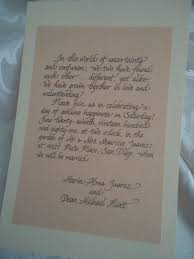 In this world of uncertainty
and confusion, we two have found
each other... different, yet alike.
We have grown together in love and
understanding.
Please join us in celebrating a
day of genuine happiness on Saturday,
June twenty-ninth, nineteen hundred
and eighty-five, at two o'clock, in the
garden of Mr. & Mrs. Mauricio Juarez
at Pate Place, San Diego when
we will be married.
Maria Alma Juarez
and
Dean Michael Hiatt